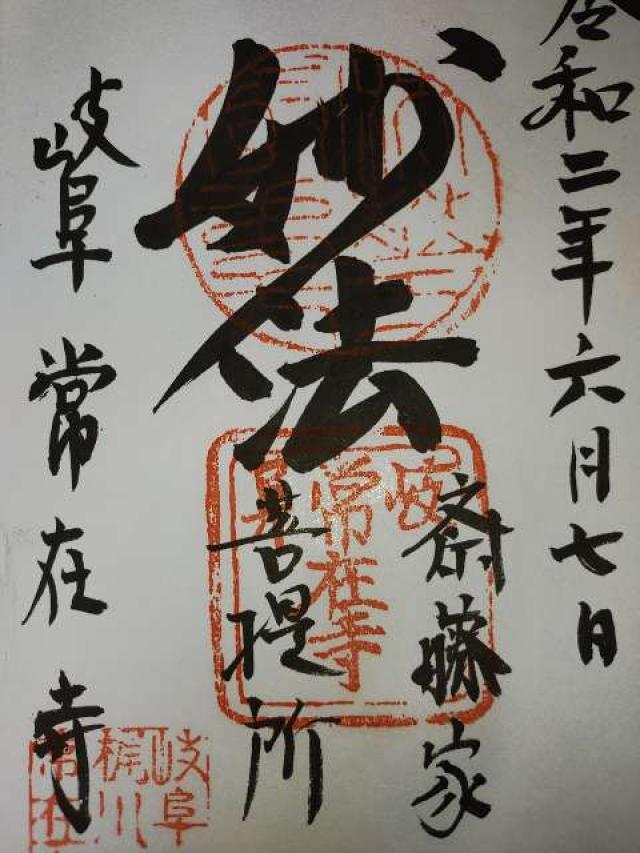 令和二年六月七日
妙法
斎藤家
菩提所
岐阜常在寺
岐阜
常在寺
岐阜
梶川
常在